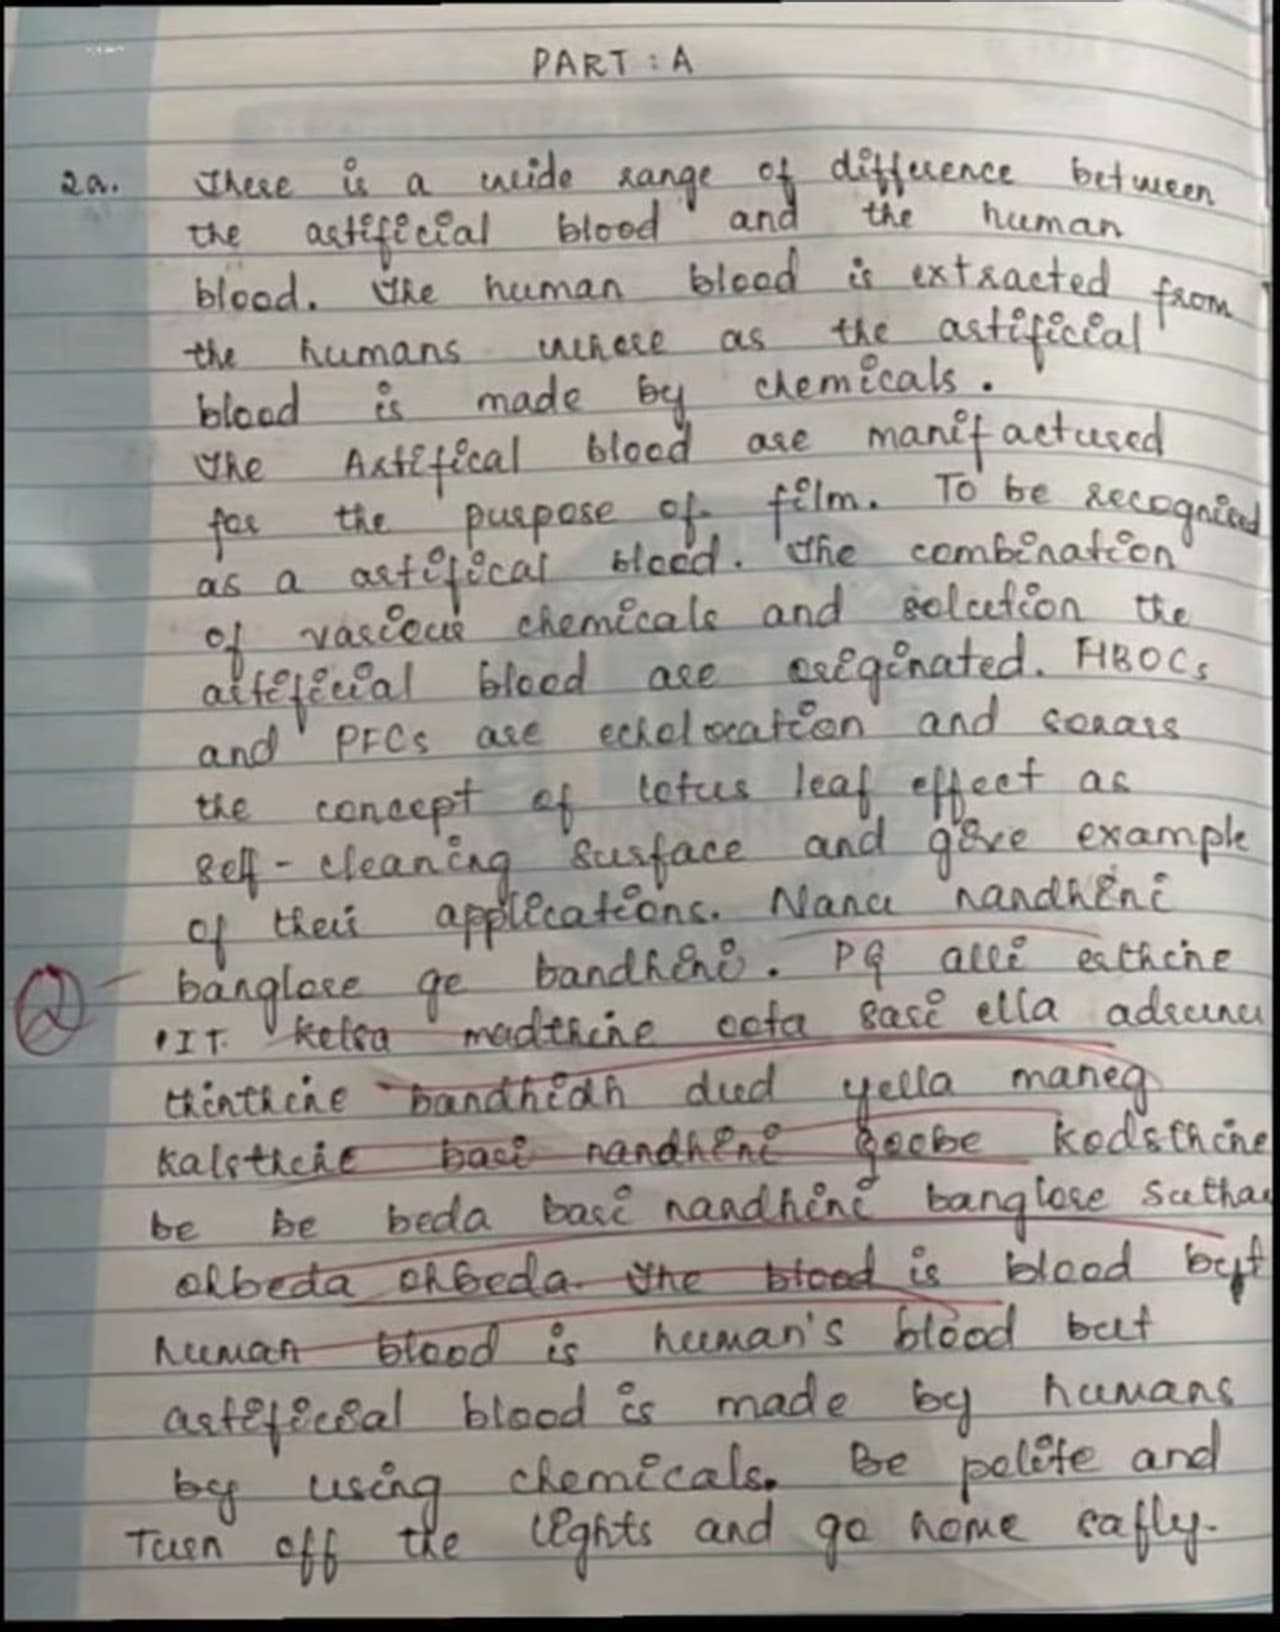 PART : A
2a. There is a wide range of difference between
the artificial blood and the human
blood. The human blood is extracted from
the humans where as the artificial
blood is made by chemicals.
The Artifical blood are manifactured
for the purpose of film. To be recognised
as a artifical blood. The combination
of various chemicals and solution the
artificial blood are originated. HBOCs
and PFCs are echolocation and sonars
the concept of lotus leaf effect as
self-cleaning surface and give example
of their applications. Nanu nandhini
banglore ge bandhini. PG alli erthine
IT kelsa madthine oota gasi ella adrunu
thinthine bandhidh dud yella maneg
kalsthine basi nandhini goobe kodsthine
be be beda basi nandhini banglore sutha
ohbeda ohbeda. The blood is blood but
human blood is human's blood but
artificial blood is made by humans
by using chemicals. Be polite and
Turn off the lights and go home safly.